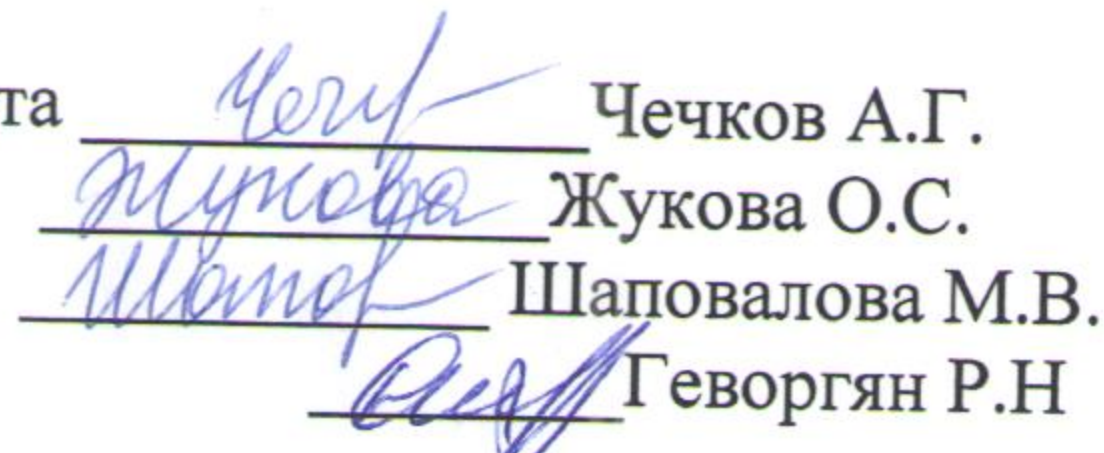 та Чечков А.Г.
Жукова Жукова О.С.
Шаповалова М.В.
Геворгян Р.Н